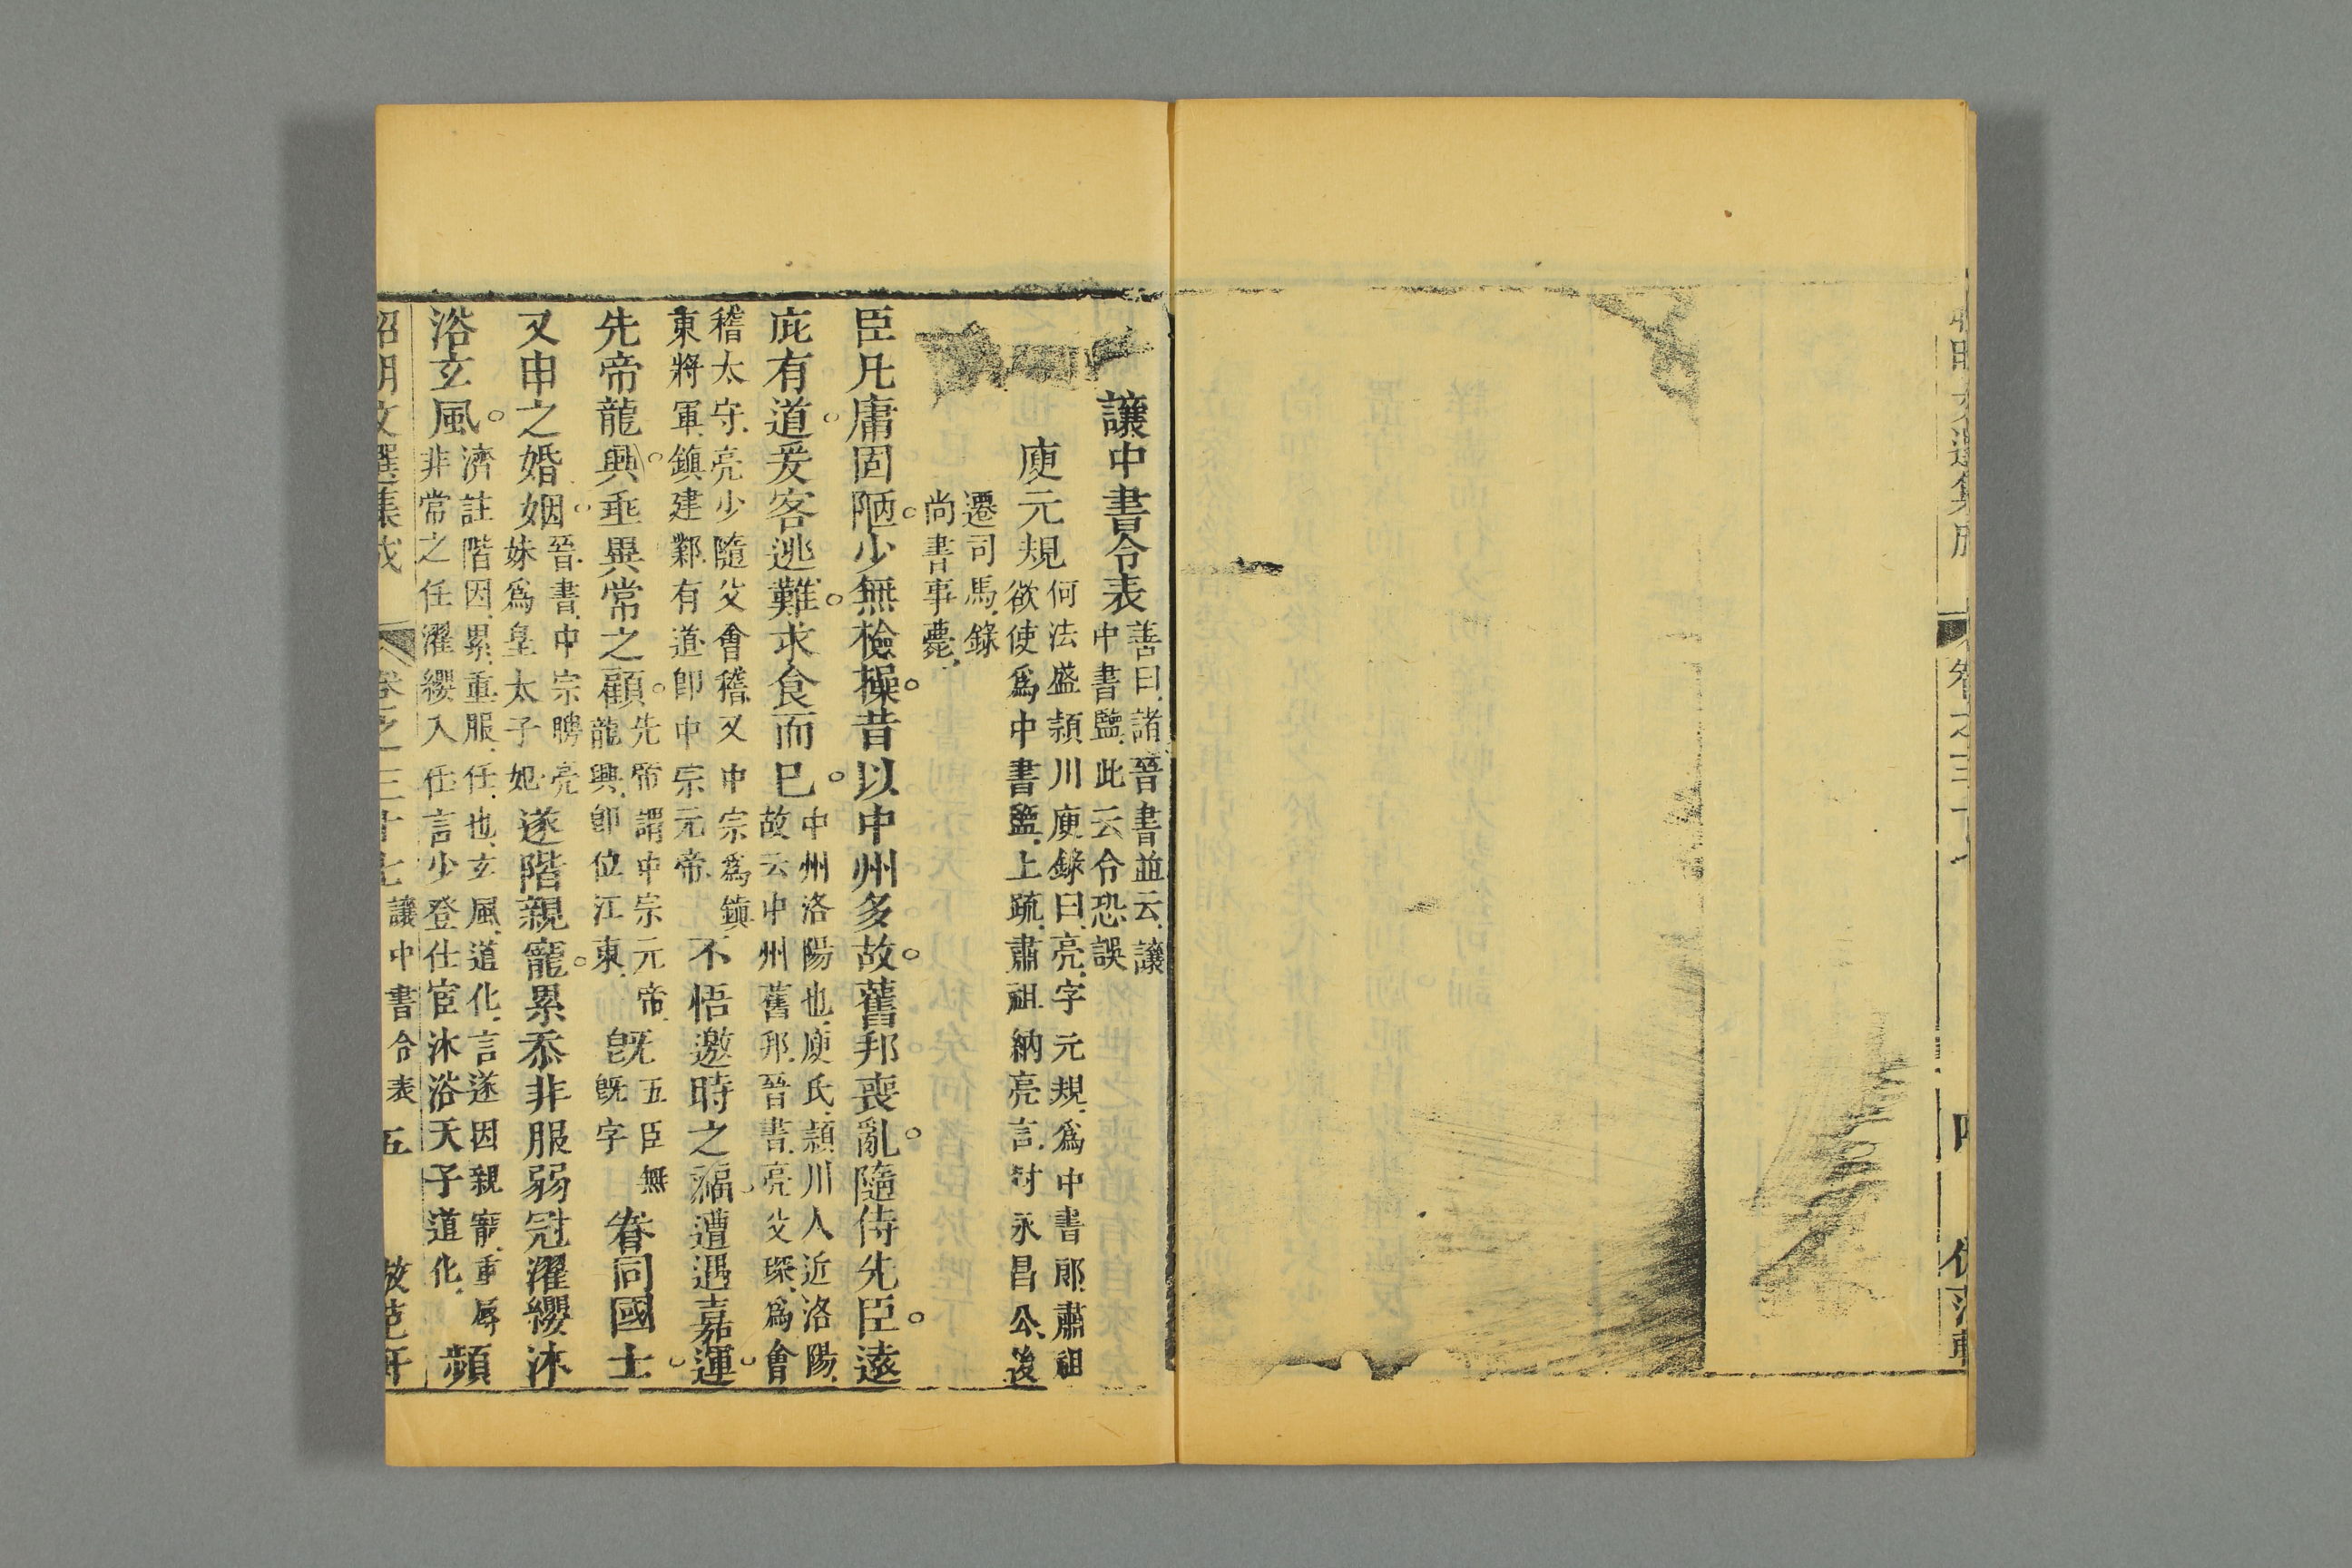 讓中書令表善曰諸晉書並云讓
中書鹽此云令恐誤
庾元規何法盛頴川庾錄曰亮字元規爲中書郞肅祖
欲使爲中書監上疏肅祖納亮言封永昌公後
遷司馬錄
尚書事薨
臣凡庸固陋少無檢操昔以中州多故舊邦喪亂隨侍先臣遠
庇有道爰客逃難求食而已中州洛陽也庾氏頴川人近洛陽
故云中州舊邦晉書亮父琛爲會
稽太守亮少隨父會稽又中宗爲鎮
東將軍鎮建鄴有道卽中宗元帝不悟邀時之福遭遇嘉運
先帝龍興垂異常之顧先帝謂中宗元帝
龍興卽位江東旣五臣無
旣字眷同國士
又申之婚姻晉書中宗聘亮
妹爲皇太子妃遂階親寵累忝非服弱冠濯纓沐
浴玄風濟註階因累重服任也玄風道化言遂因親寵重辱
非常之任濯纓入仕言少登仕宦沐浴天子道化頻
昭明文選集成 卷之三十七 讓中書令表 五